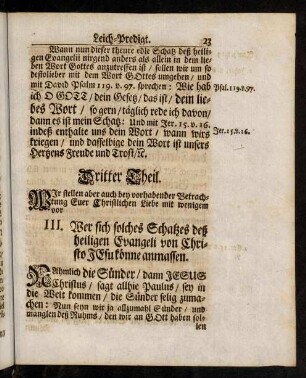 Leich-Predigt. 23
Wann nun dieser theure edle Schatz deß heili-
gen Evangelii nirgend anders als allein in dem lie-
ben Wort Gottes anzutreffen ist / sollen wir um so
destolieber mit dem Wort GOttes umgehen / und
mit David Psalm 119. v. 97. sprechen: Wie hab
ich O GOTT / dein Gesetz / das ist / dem lie-
bes Wort / so gern / täglich rede ich davon /
dann es ist mein Schatz: Und mit Jer. 15. v. 16.
indeß enthalte uns dein Wort / wann wirs
kriegen / und dasselbige dein Wort ist unsers
Hertzens Freude und Trost / ꝛc.
Psal. 119. v. 97.
Jer. 15. v. 16.
Dritter Theil.
WIr stellen aber auch bey vorhabender Betrach-
tung Euer Christlichen Liebe mit wenigem
vor
III. Wer sich solches Schatzes deß
heiligen Evangeli von Chri-
sto JEsu könne anmassen.
NAhmlich die Sünder / dann JESUS
Christus / sagt allhie Paulus / sey in
die Welt kommen / die Sünder selig zuma-
chen: Nun seyn wir ja allzumahl Sünder / und
manglen deß Ruhms / den wir an GOtt haben sol-
len